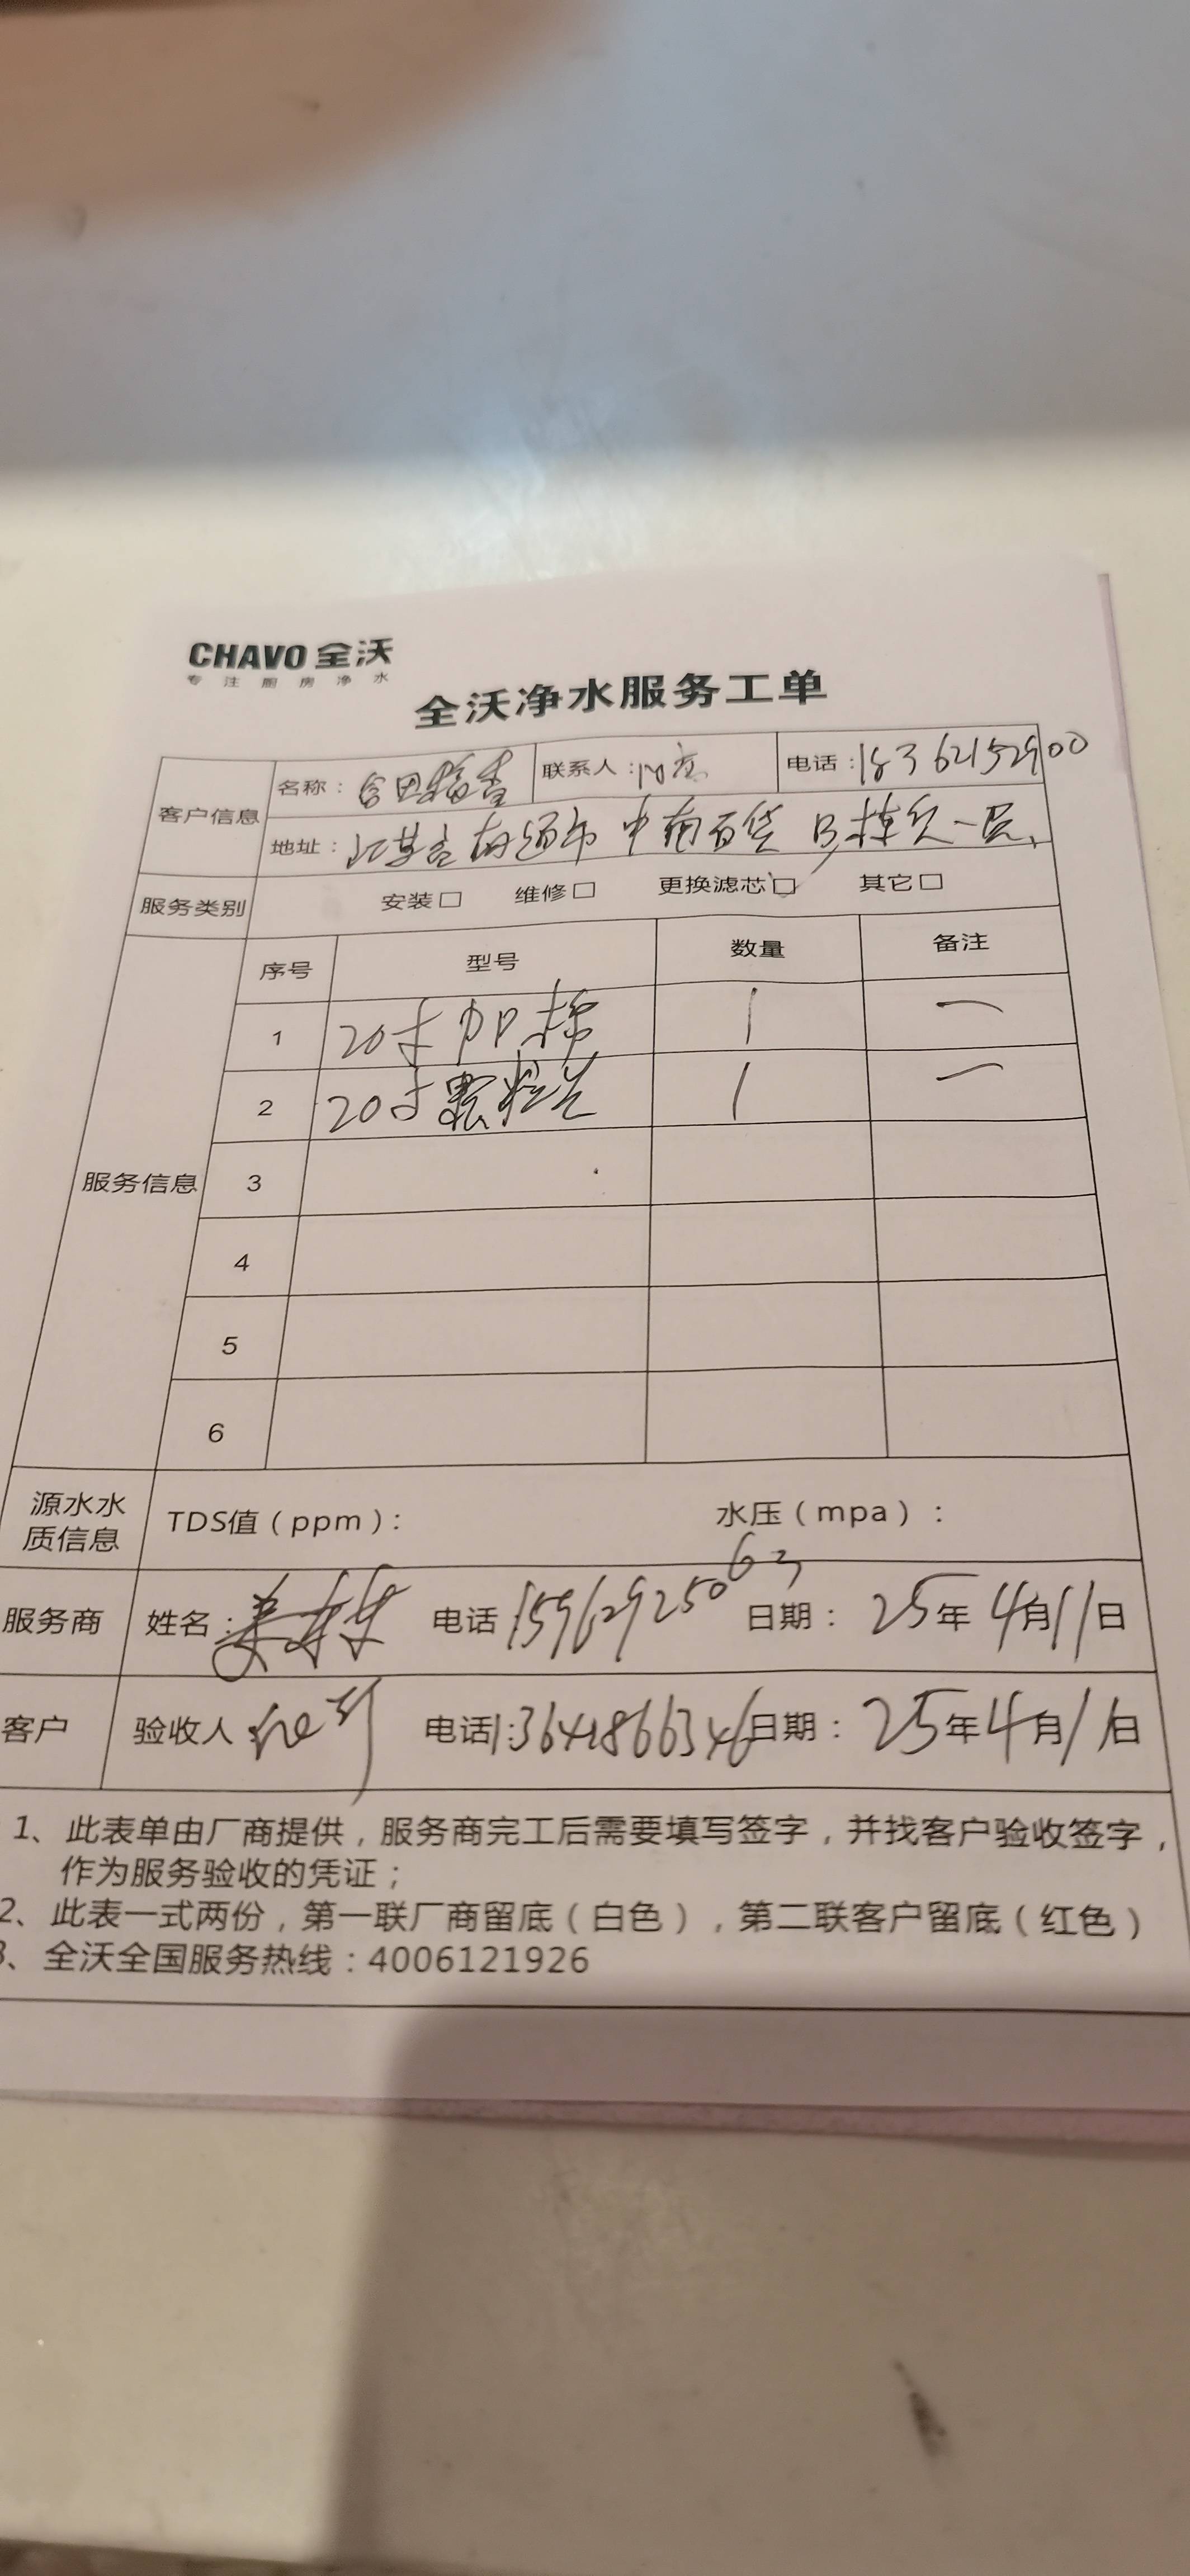 CHAVO 全沃
专注厨房净水
全沃净水服务工单
客户信息
名称： 联系人： 电话：18362152900
地址： 南通市 中南百货 B栋 一层
服务类别 安装□ 维修□ 更换滤芯□ 其它□
服务信息
序号 型号 数量 备注
1 20寸PP棉 1 一
2 20寸颗粒炭 1 一
3
4
5
6
源水水质信息 TDS值（ppm）： 水压（mpa）：
服务商 姓名： 电话 15962925063 日期： 25年4月11日
客户 验收人 电话： 日期： 25年4月11日
1、此表单由厂商提供，服务商完工后需要填写签字，并找客户验收签字，
作为服务验收的凭证；
2、此表一式两份，第一联厂商留底（白色），第二联客户留底（红色）
3、全沃全国服务热线：4006121926